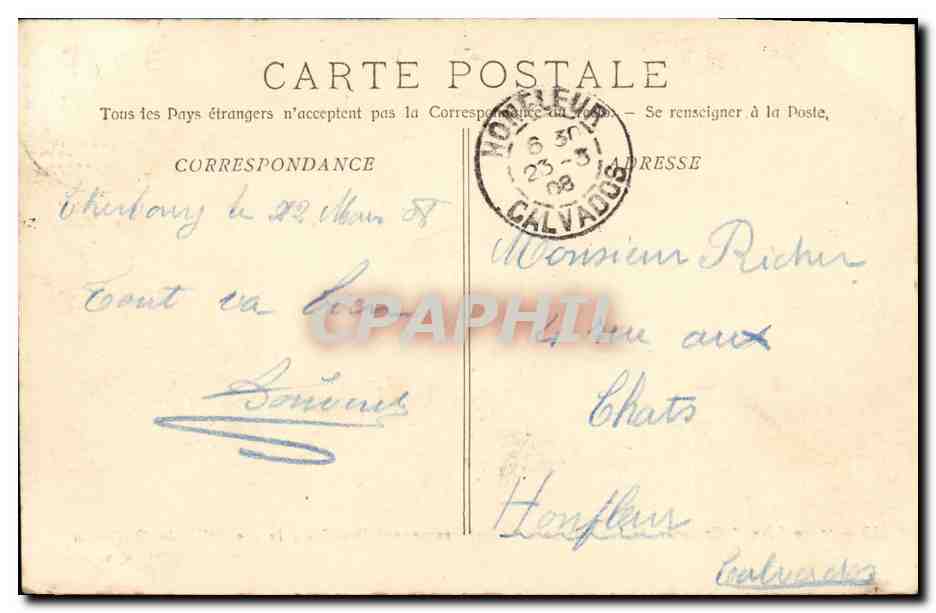 CARTE POSTALE
Tous les Pays étrangers n'acceptent pas la Correspondance au recto. — Se renseigner à la Poste,
CORRESPONDANCE
Cherbourg le 22 Mars 08
Tout va bien
HONFLEUR
6 30
23 - 3
08
CALVADOS
ADRESSE
Monsieur Richer
4 rue aux
Chats
Honfleur
Calvados
CPAPHIL